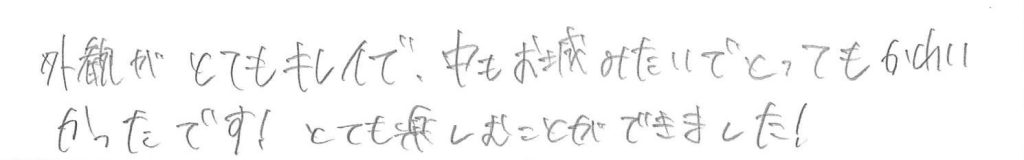 外観がとてもキレイで、中もお城みたいでとってもかわいい
かったです!とても楽しむことができました!